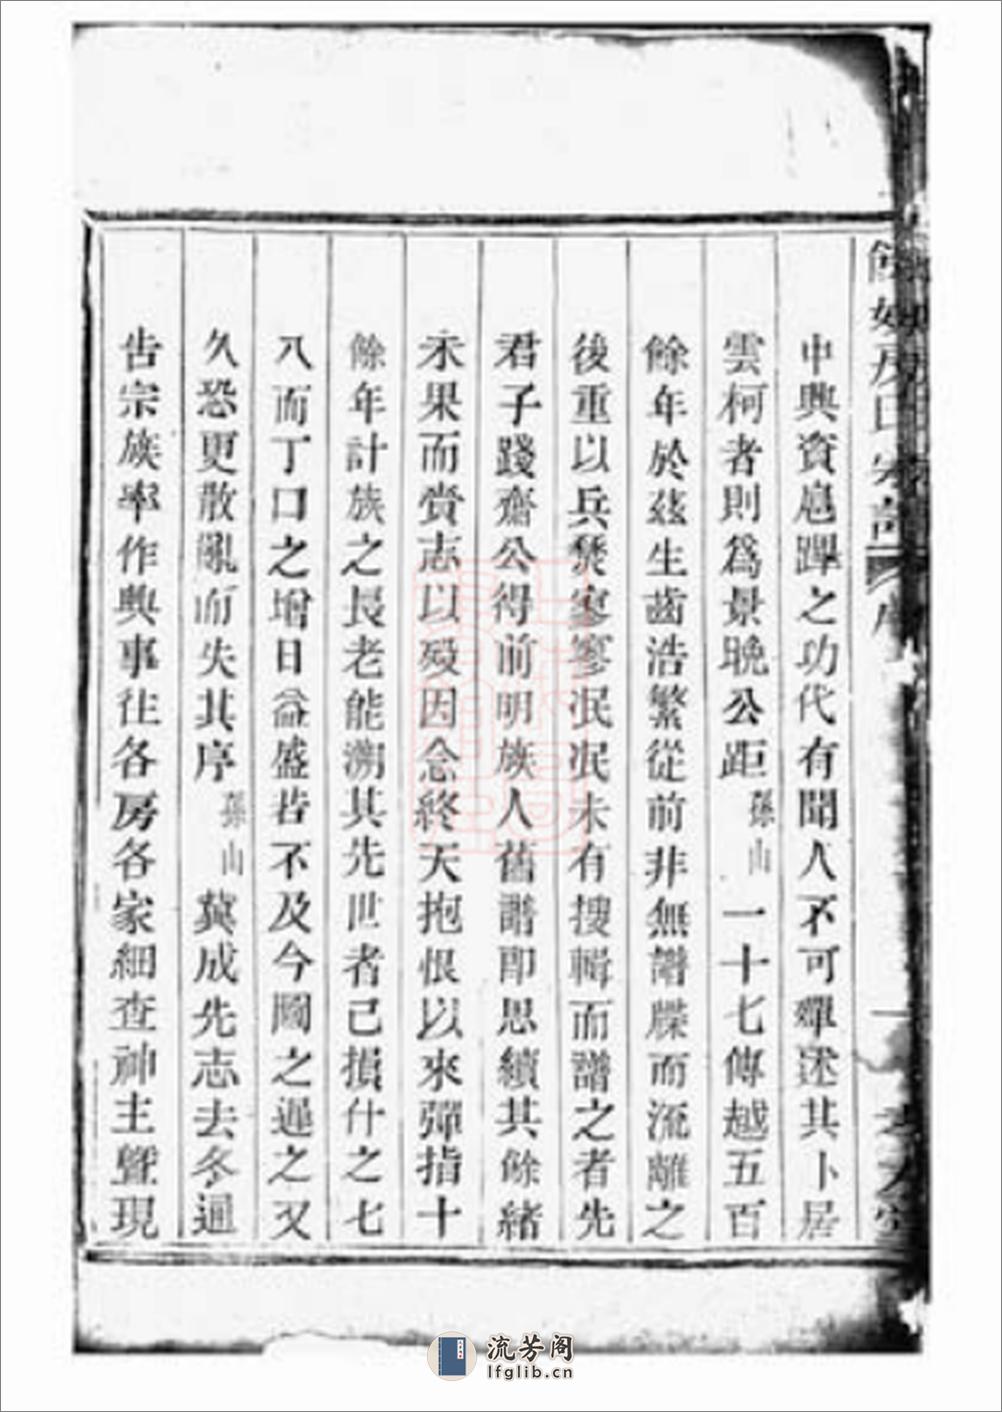 餘姚房氏宗譜 序 一
中興資扈蹕之功代有聞人不可殫述其卜居
雲柯者則爲景晚公距孫山一十七傳越五百
餘年於茲生齒浩繁從前非無譜牒而流離之
後重以兵燹寥寥泯泯未有搜輯而譜之者先
君子踐齋公得前明族人舊譜卽思續其餘緖
未果而賫志以歿因念終天抱恨以來彈指十
餘年計族之長老能溯其先世者已損什之七
八而丁口之增日益盛若不及今圖之遲之又
久恐更散亂而失其序孫山冀成先志去冬通
告宗族率作興事往各房各家細查神主暨現
流芳阁
lfglib.cn